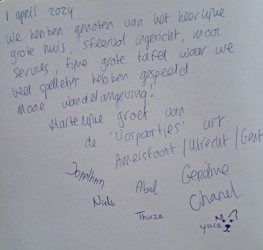 1 april 2024
We hebben genoten van het heerlijke
grote huis, sfeervol ingericht, mooi
servies, fijne grote tafel waar we
veel spelletjes hebben gespeeld.
Mooie wandelomgeving!
Hartelijke groet van
de 'Vospoorties' uit
Amersfoort / Utrecht / Gent
Jonathan Abel Gerdine
Niels Thirza Chanel
yuca